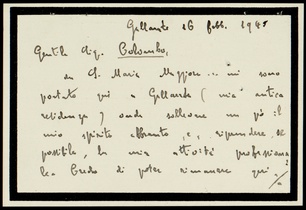 Gallarate 26 febb. 1945
Gentile Sig. Colombo,
da S. Maria Maggiore ... mi sono
portato qui a Gallarate (mia antica
residenza) onde sollevare un pò il
mio spirito affranto e, riprendere, se
possibile, la mia attività professiona
le. Credo di poter rimanere qui